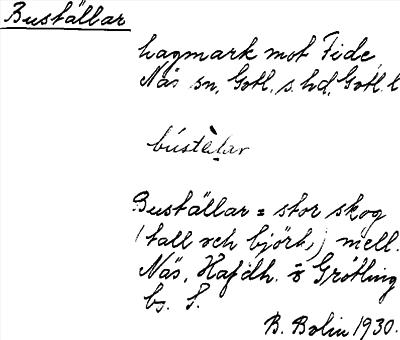 Buställar
hagmark mot Fide,
Näs sn, Gotl. s. hd, Gotl. l
bústàlar
Buställar = stor skog
(tall och björk,) mell.
Näs, Hafdh. o Grötling
bs. S.
B. Bolin 1930.